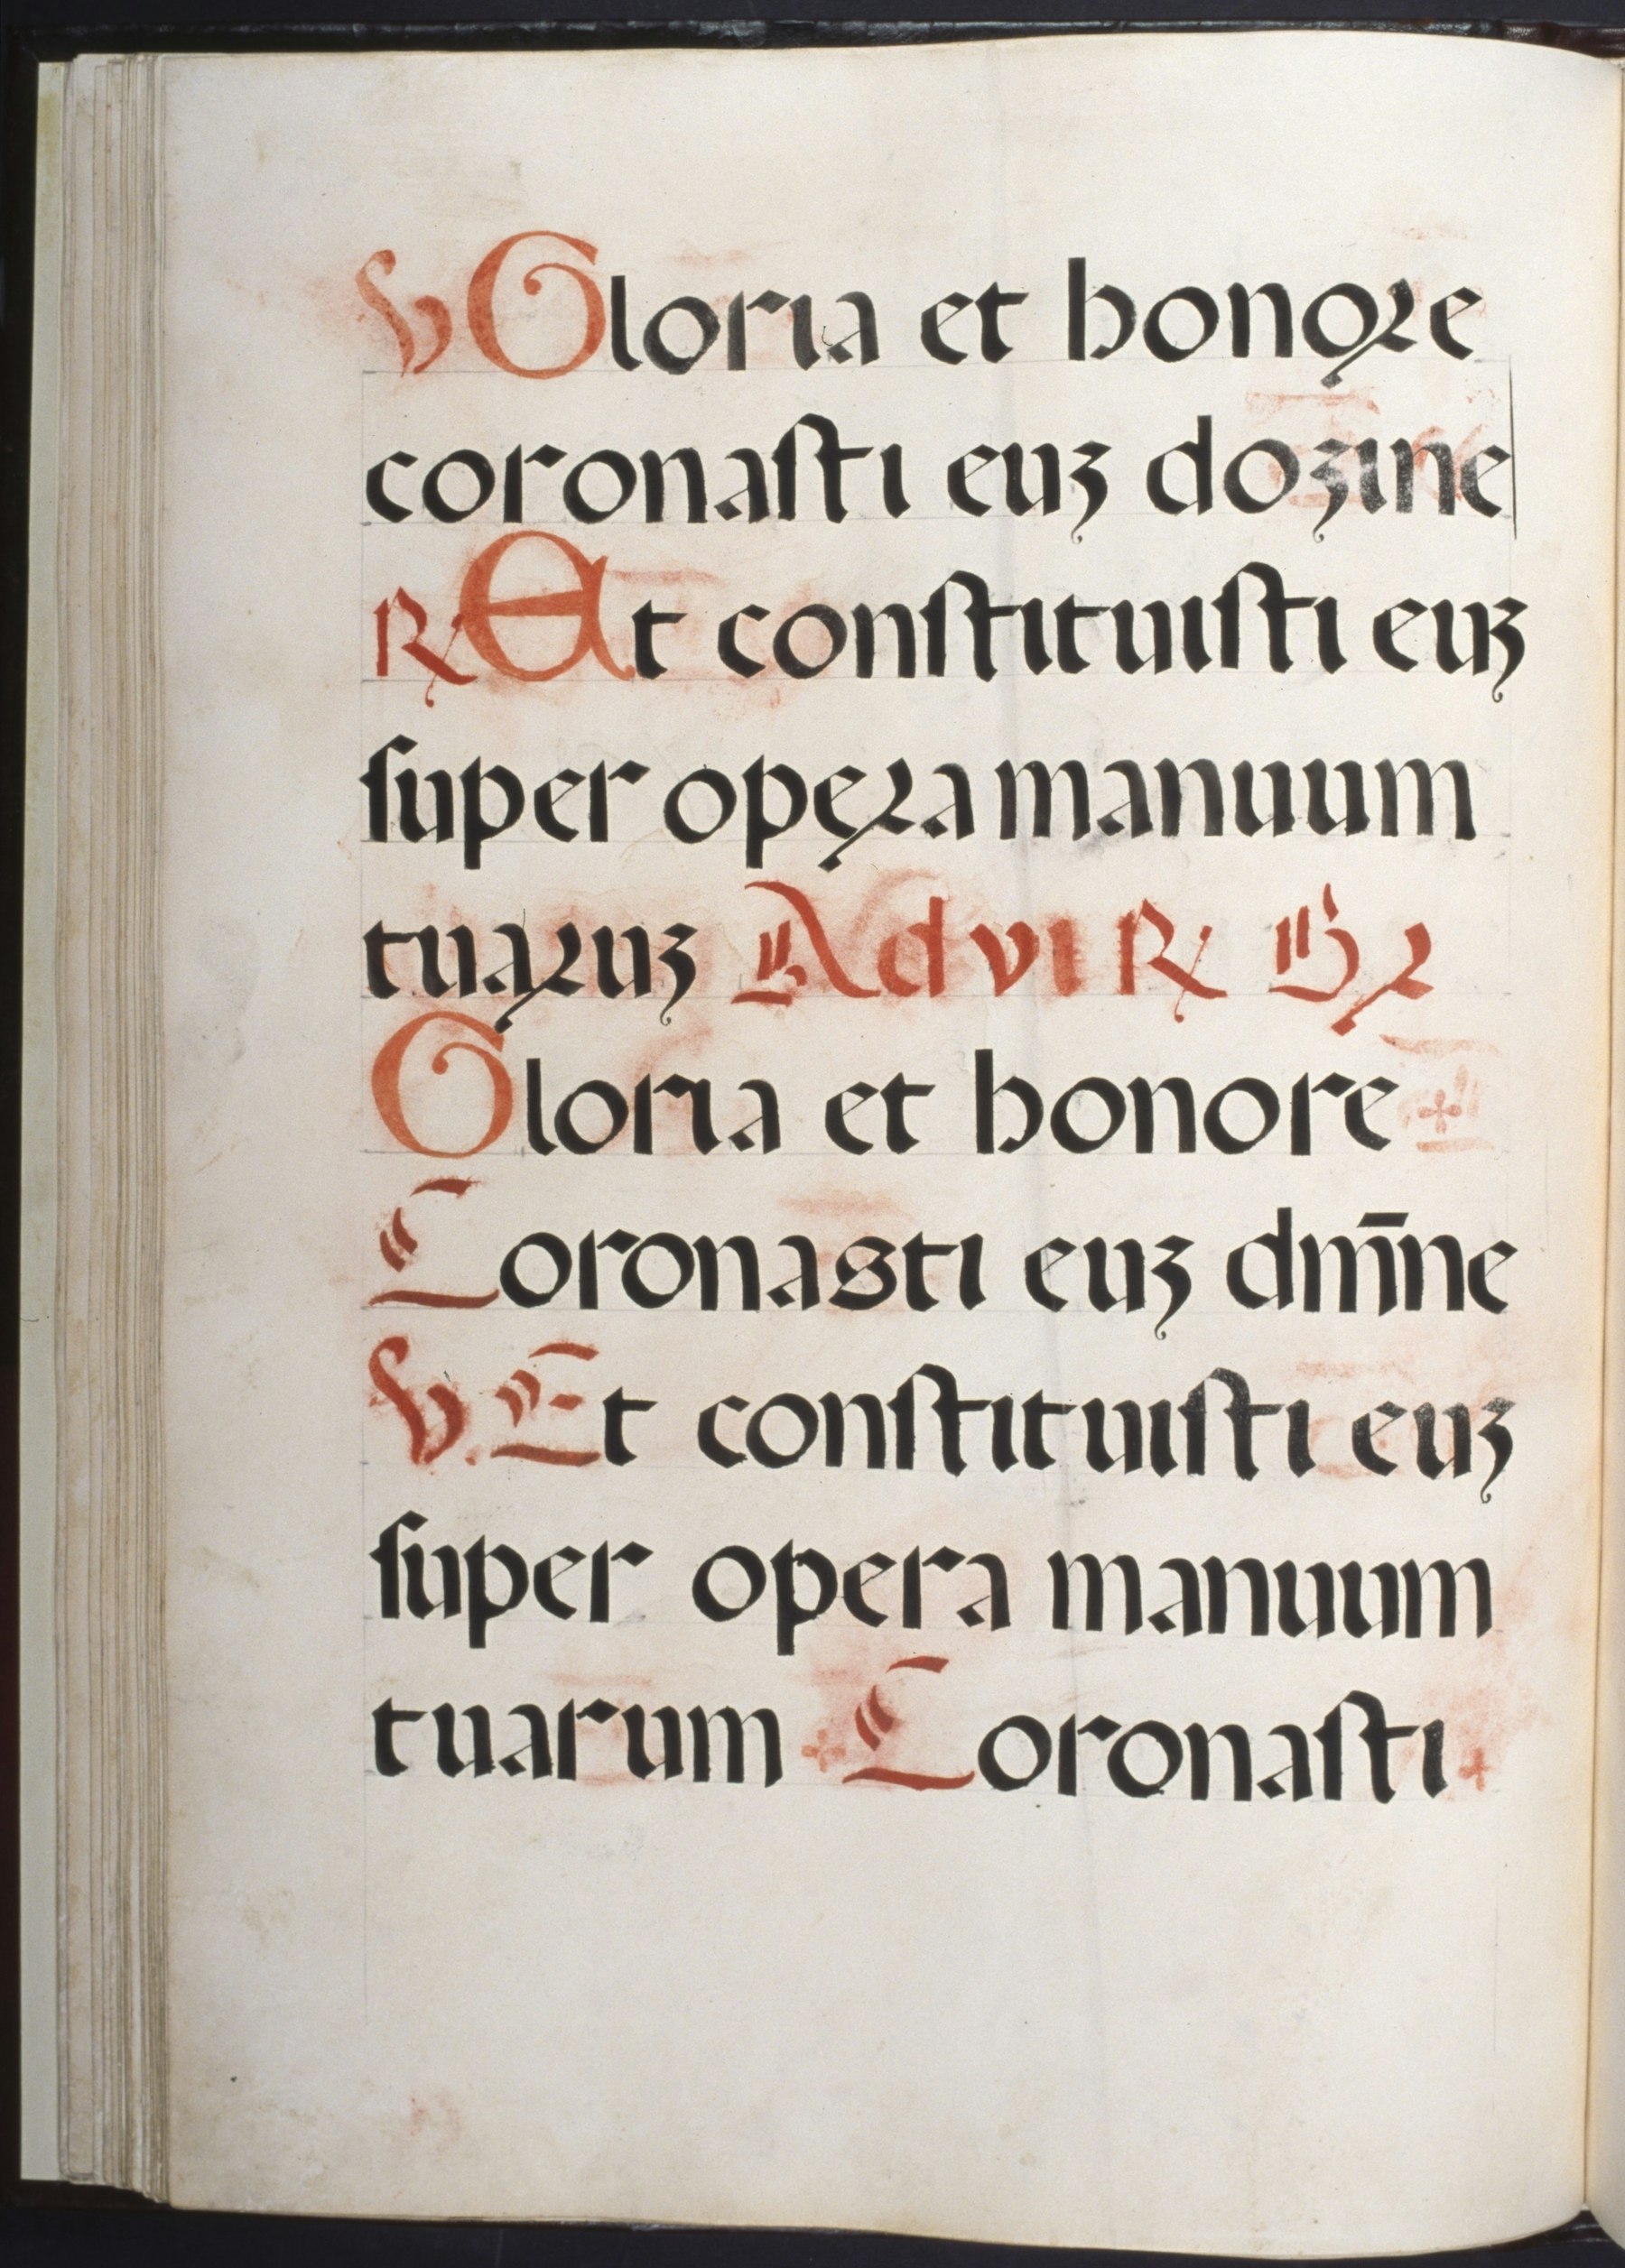 ℣ Gloria et honoꝛe
coronaſti euꝫ doꝫine
℟ Et conſtituiſti euꝫ
ſuper opeꝛa manuum
tuaꝛuꝫ Ad vi ℟ Bꝛ
Gloria et honore ✢
Coronasti euꝫ dm̄ne
℣. Et conſtituiſti euꝫ
ſuper opera manuum
tuarum ✢ Coronaſti ✢